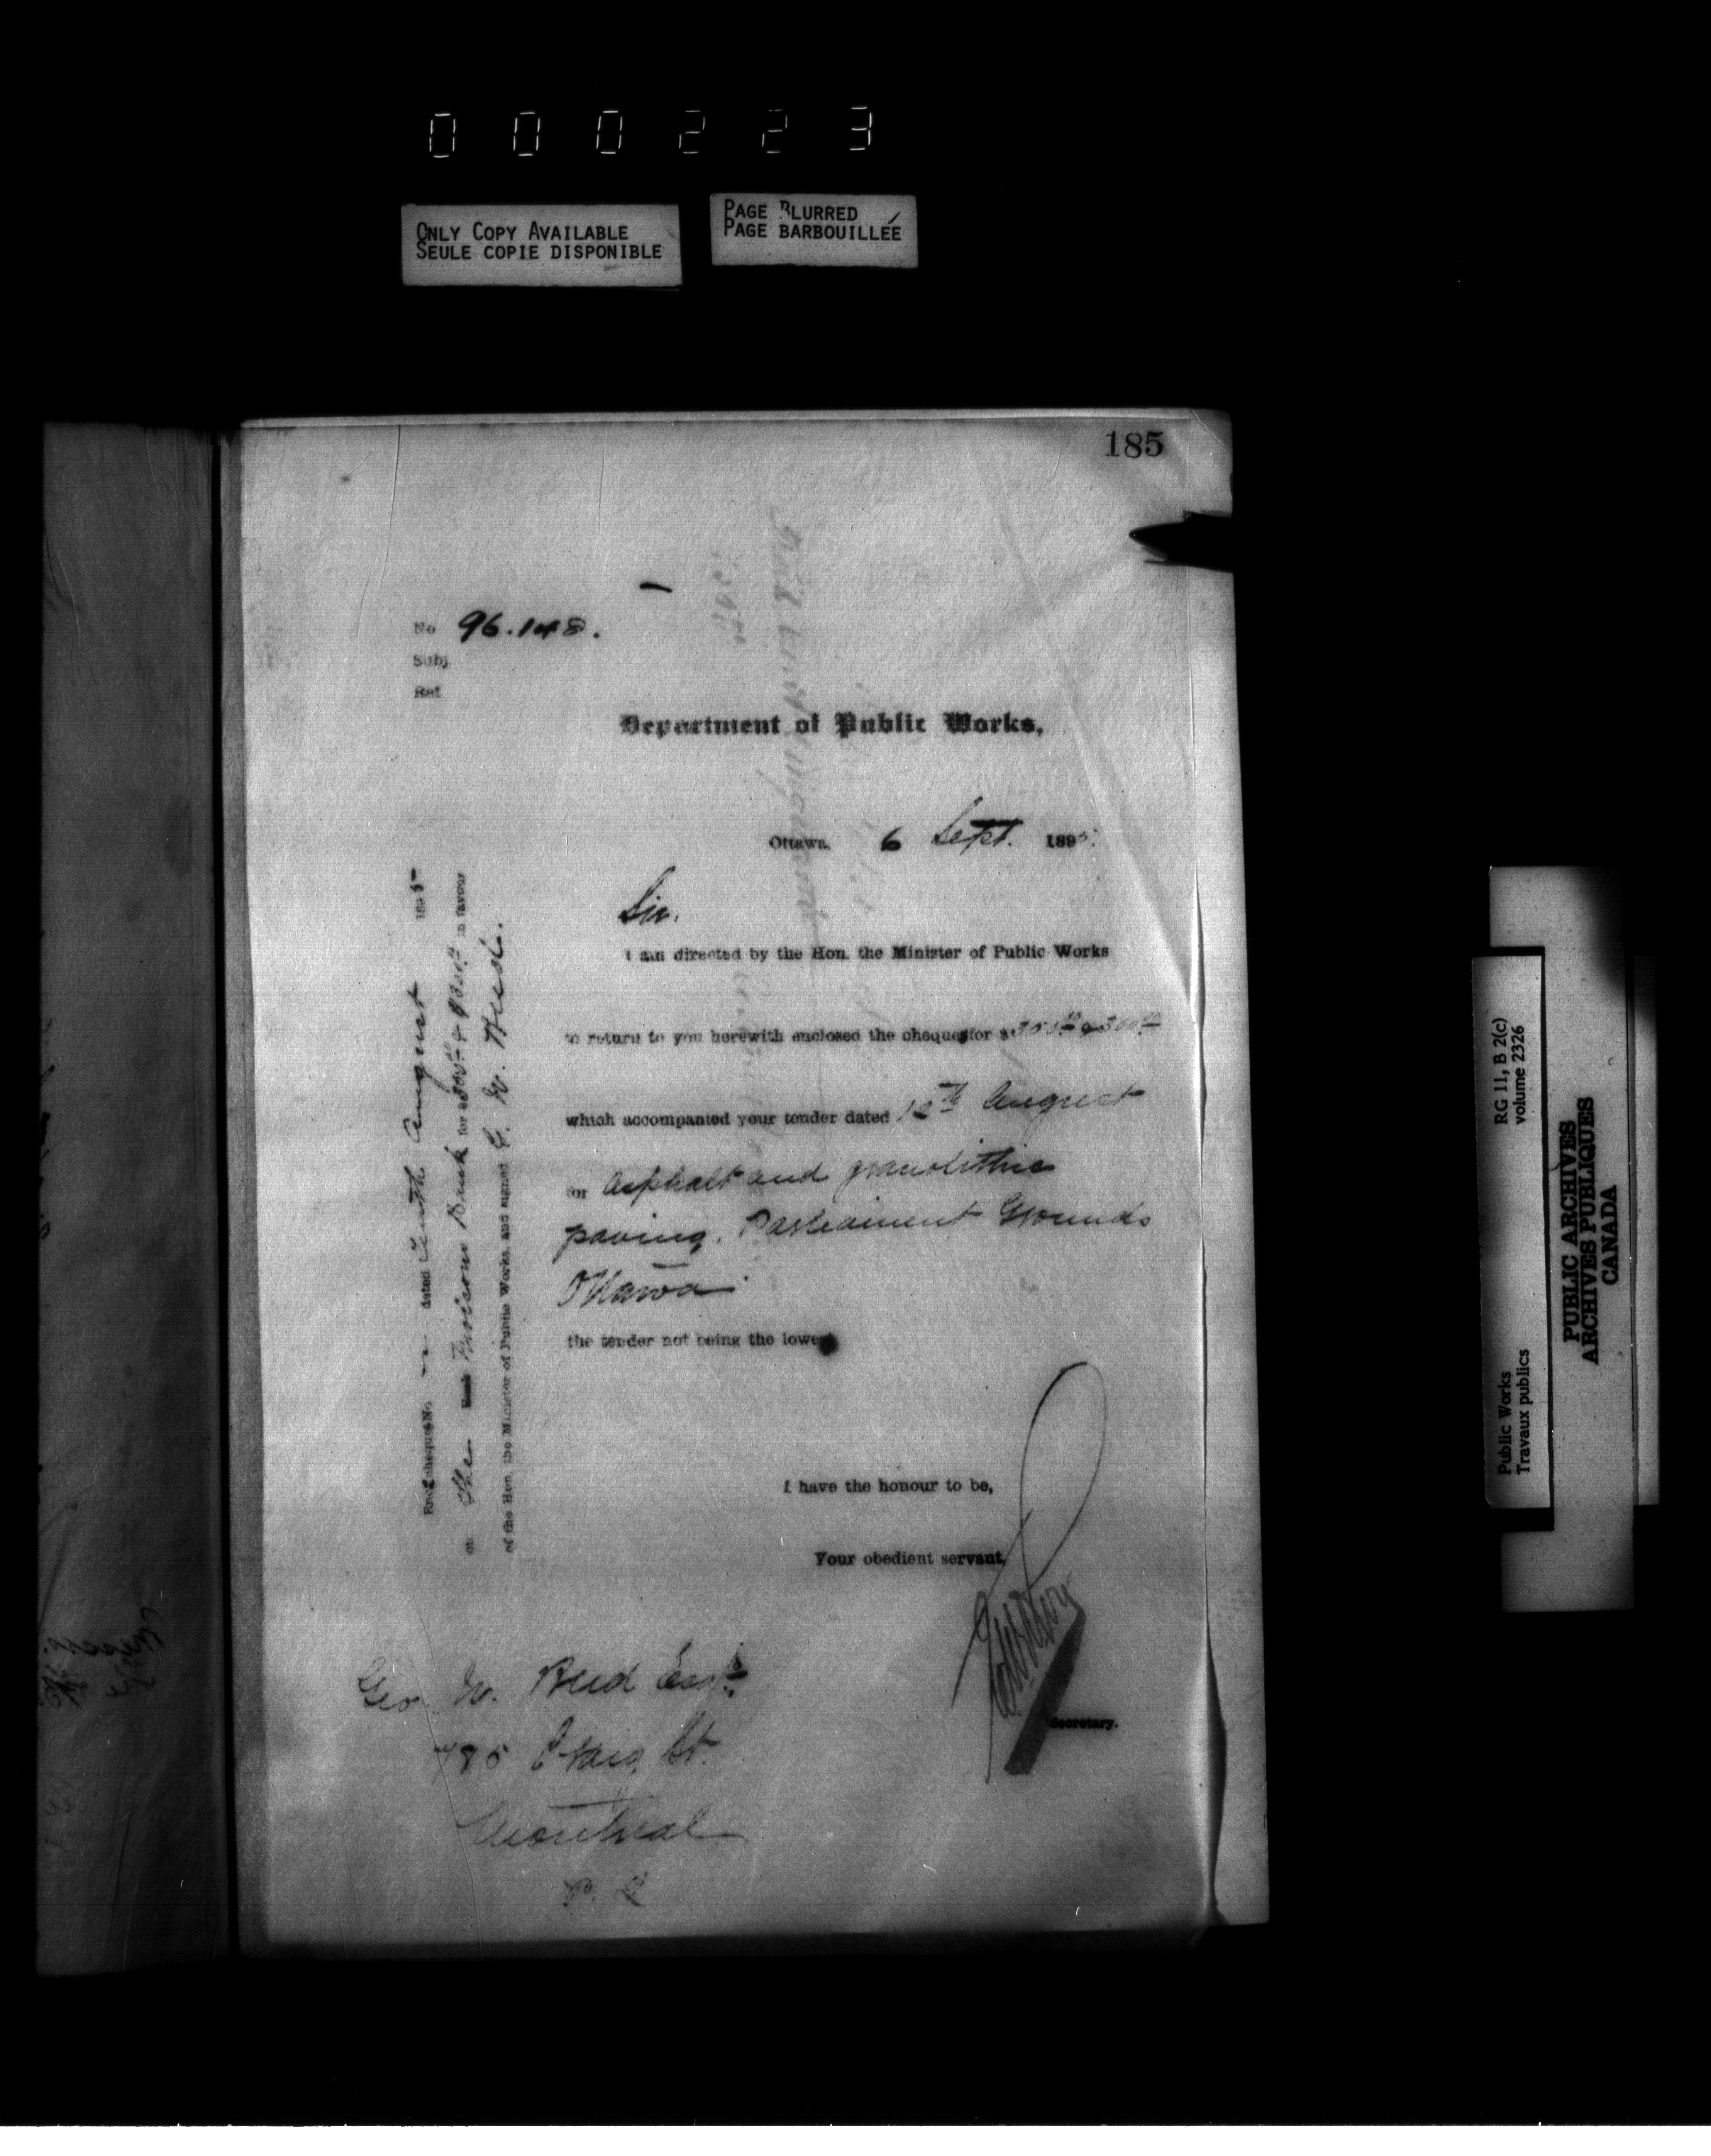 000223
ONLY COPY AVAILABLE
SEULE COPIE DISPONIBLE
PAGE BLURRED
PAGE BARBOUILLÉE
185
No 96.148.
Subj
Ref
Department of Public Works,
Ottawa, 6 Sept. 1895.
Sir.
I am directed by the Hon. the Minister of Public Works
to return to you herewith enclosed the cheques for $
which accompanied your tender dated 12th August
for asphalt and granolithic
paving. Parliament Grounds
Ottawa
the tender not being the lowest
I have the honour to be,
Your obedient servant,
Secretary.
Geo. W. Reed Esqr.
785 Craig St.
Montreal
P. Q
Encl cheques No dated Tenth August 1895
on The Molsons Bank for in favour
of the Hon. the Minister of Public Works, and signed G. W. Reed.
RG 11, B 2(c)
volume 2326
Public Works
Travaux publics
PUBLIC ARCHIVES
ARCHIVES PUBLIQUES
CANADA